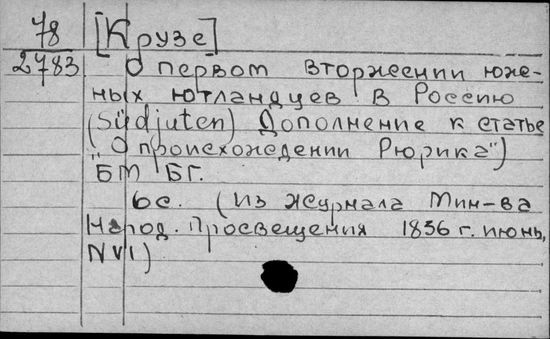 78 [Крузе]
2783 О первом вторжении юж-
ных ютландцев в Россию
(Südjuten) Дополнение к статье
"О происхождении Рюрика")
БМ БГ.
6с. (Из журнала Мин-ва
Народ. Просвещения 1836 г. июнь,
N VI)